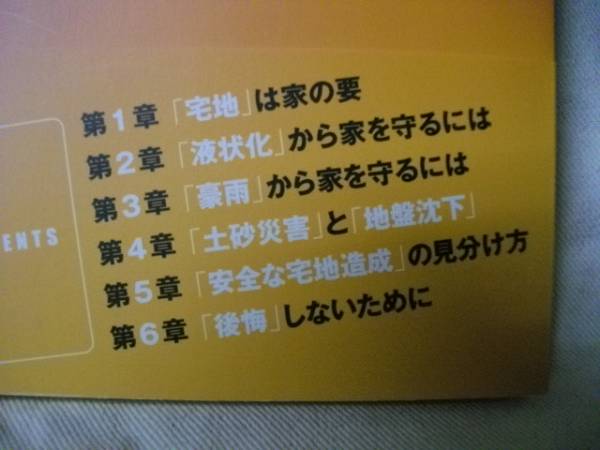 ENTS
第1章「宅地」は家の要
第2章「液状化」から家を守るには
第3章「豪雨」から家を守るには
第4章「土砂災害」と「地盤沈下」
第5章「安全な宅地造成」の見分け方
第6章「後悔」しないために